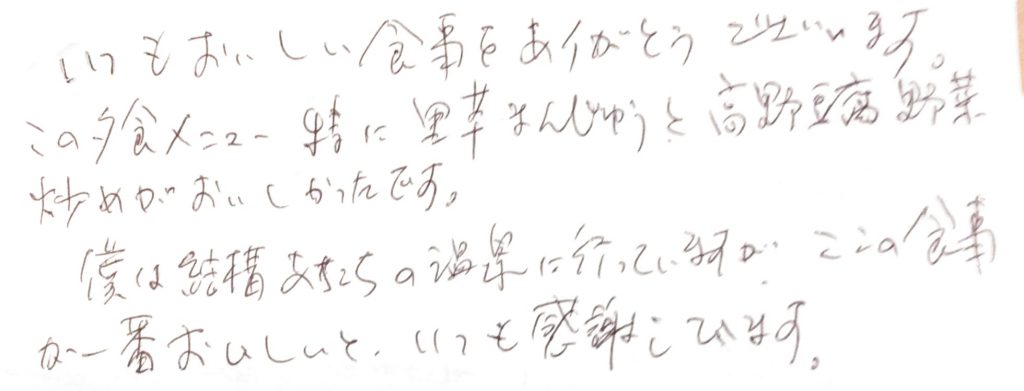 いつもおいしい食事をありがとうございます。
この夕食メニュー特に里芋まんじゅうと高野豆腐野菜
炒めがおいしかったです。
僕は結構あちこちの温泉に行っていますが ここの食事
が一番おいしいと、いつも感謝しています。